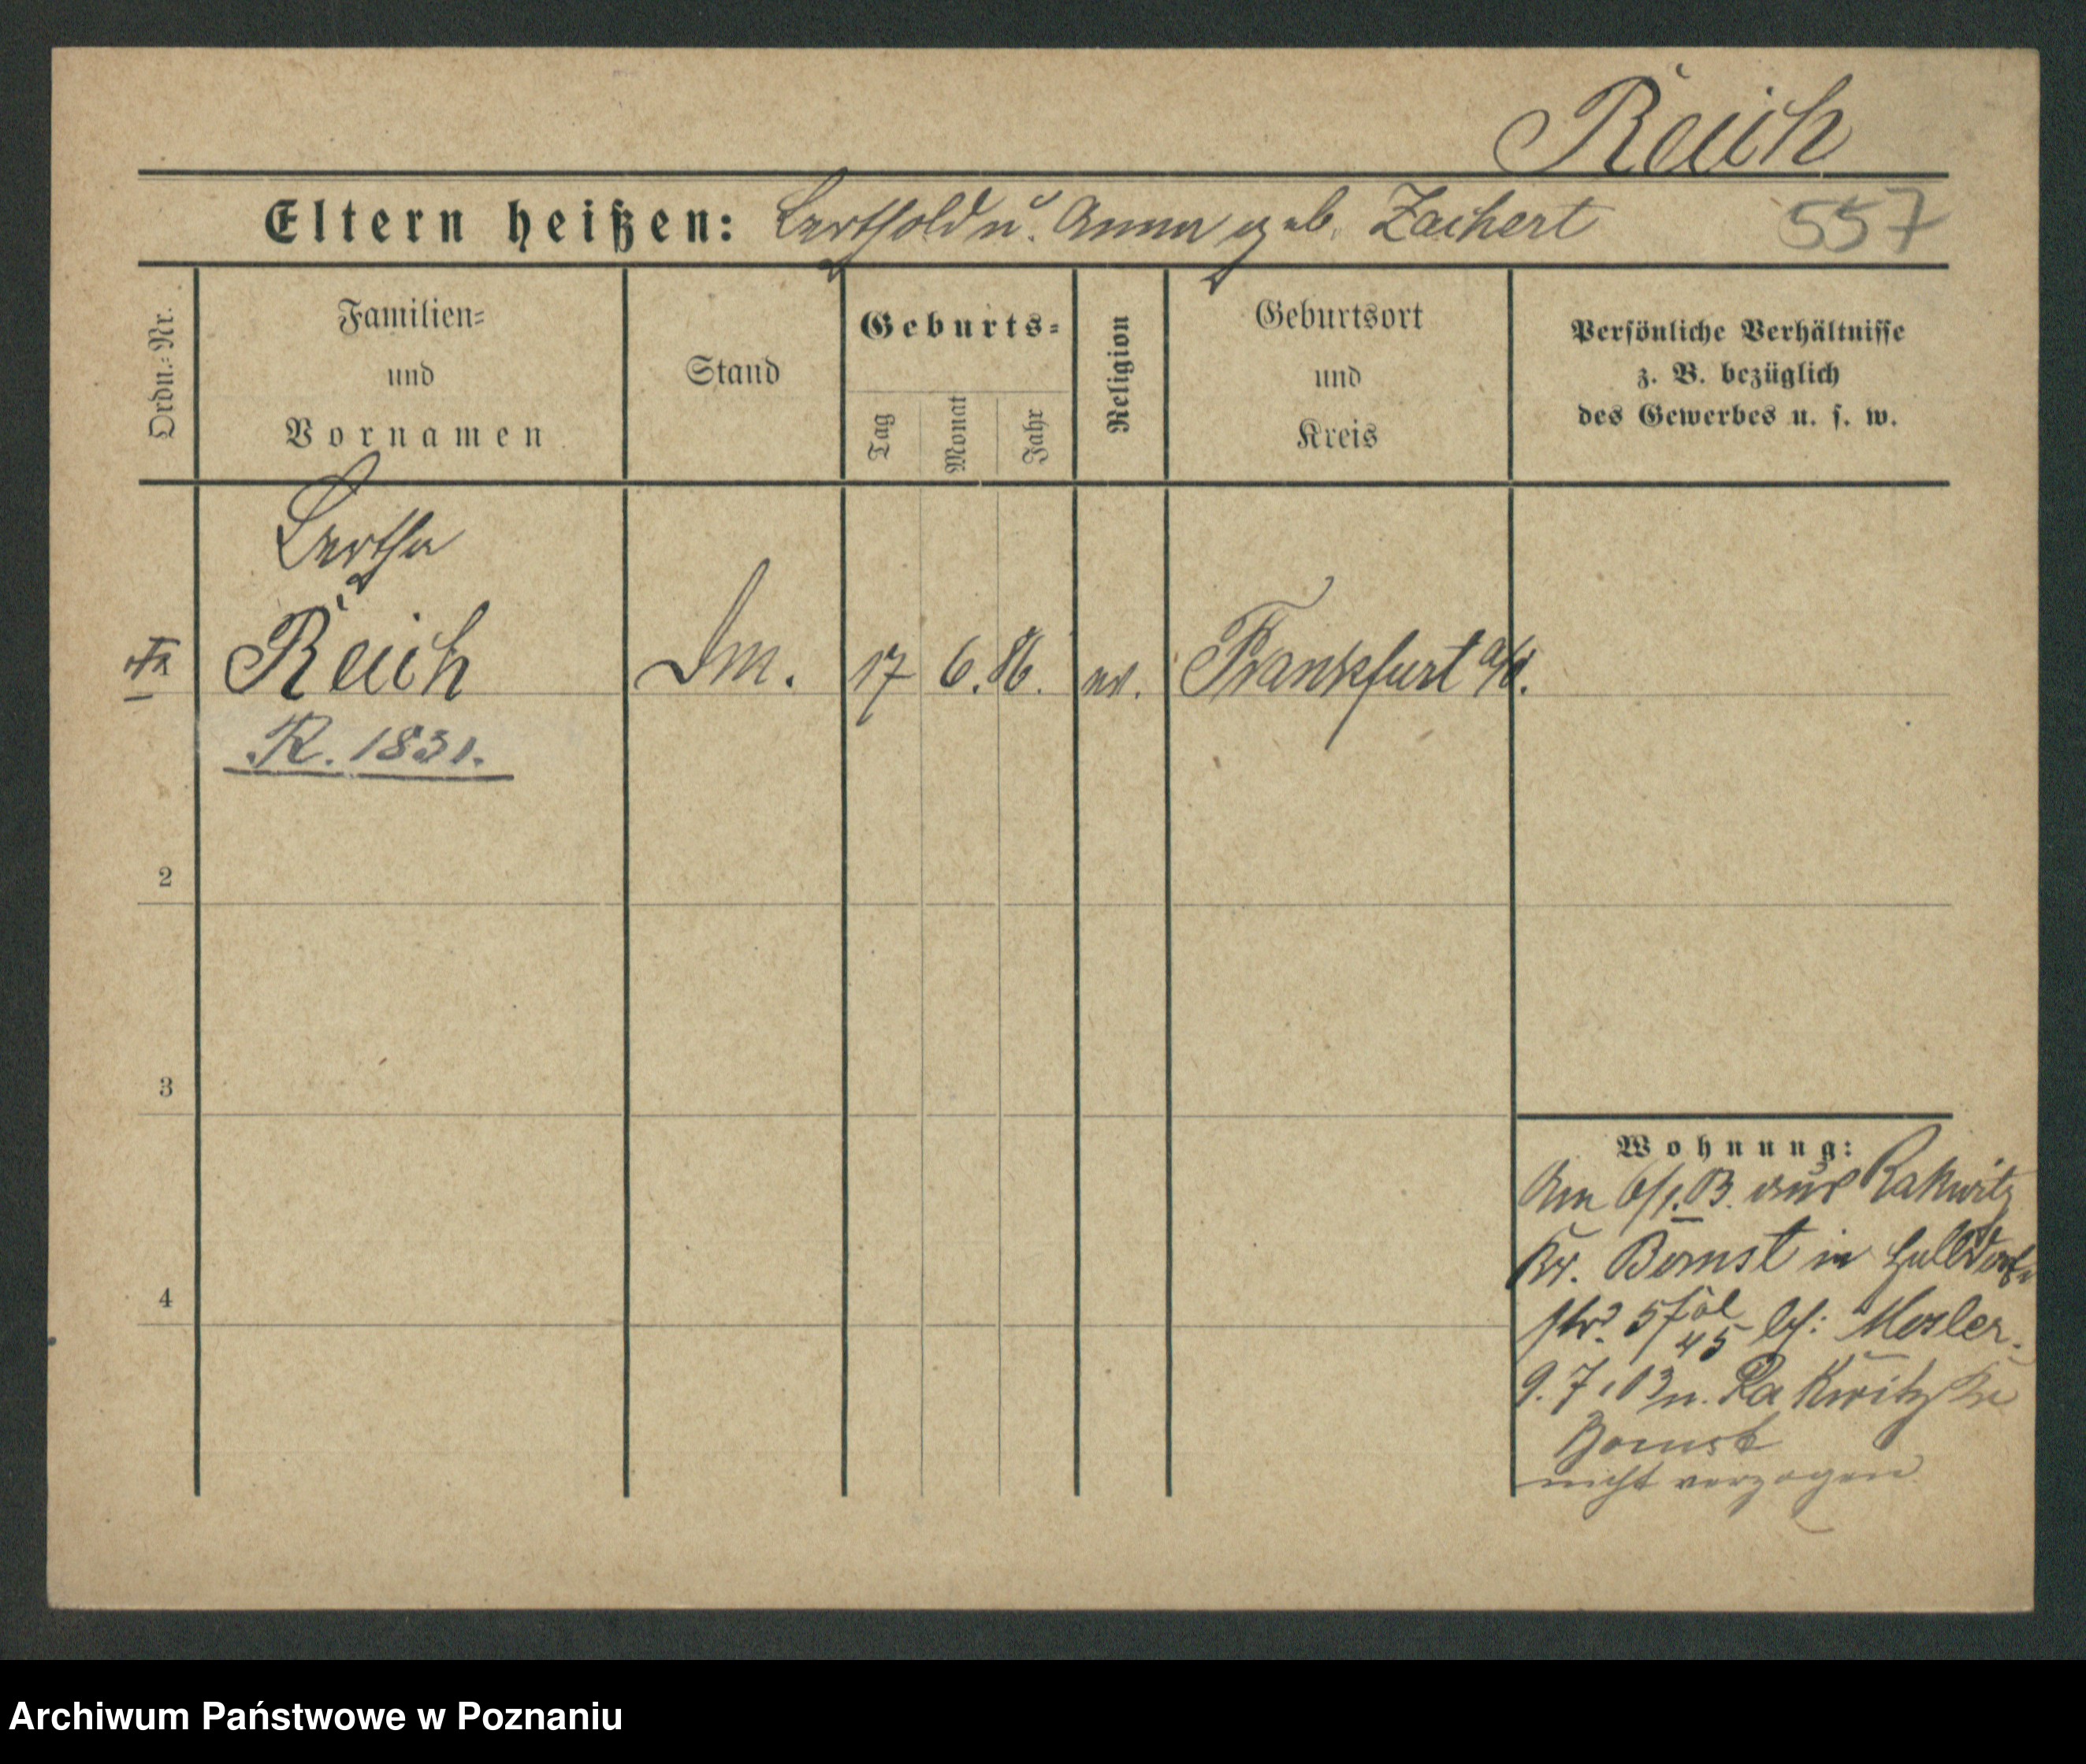 Reich
Eltern heißen: Berthold u. Anna geb. Zachert 557
Ordn.-Nr.
Familien-
und
Vornamen
Stand
Geburts-
Tag
Monat
Jahr
Religion
Geburtsort
und
Kreis
Persönliche Verhältnisse
z. B. bezüglich
des Gewerbes u. s. w.
Bertha
Fr. Reich 17 6. 86. ev. Frankfurt a/O.
R. 1831.
2
3
4
Wohnung:
Am 6/1.13. aus Rakwitz
Kr. Bomst in
str. 5 bei: Mosler.
9. 7. 13 n. Rakwitz Kr
Bomst
nicht verzogen
Archiwum Państwowe w Poznaniu